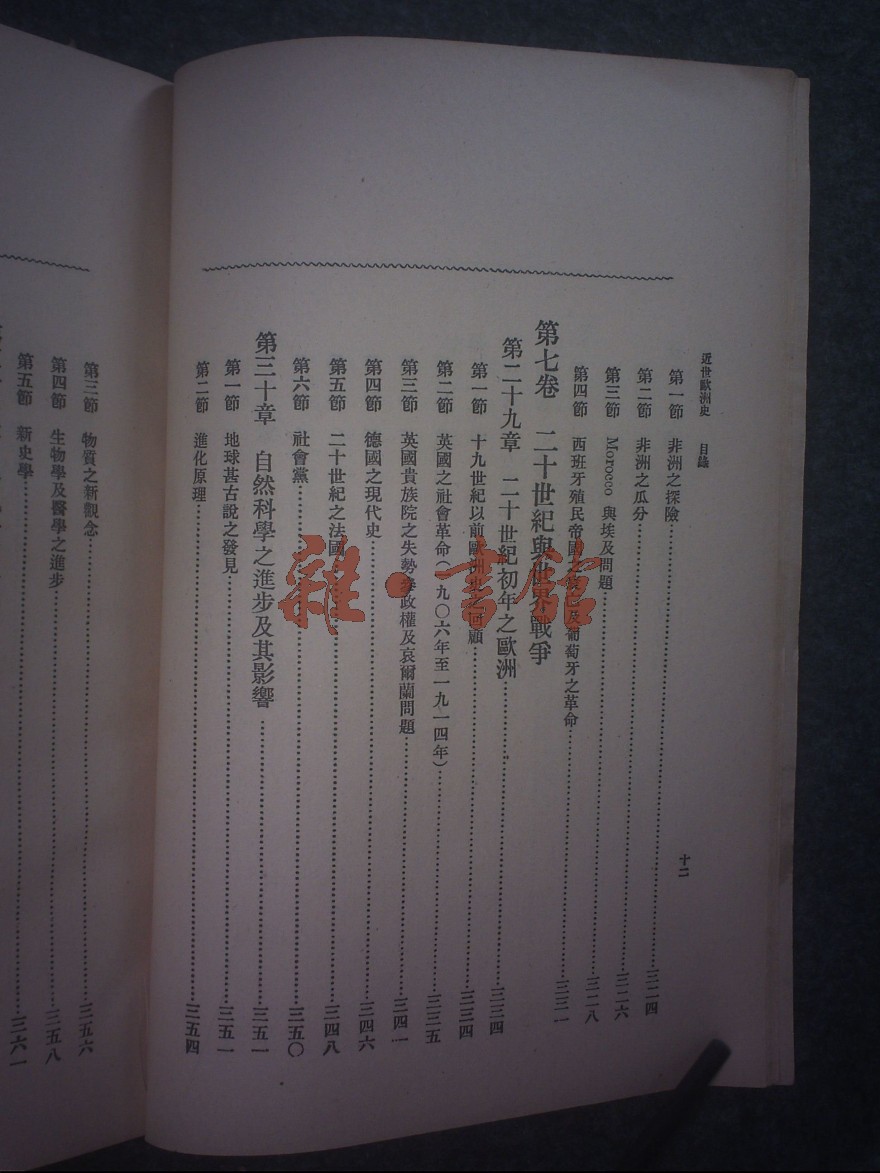 近世歐洲史 目錄 十二
第一節 非洲之探險 三二四
第二節 非洲之瓜分 三二六
第三節 Morocco 與埃及問題 三二八
第四節 西班牙殖民帝國之衰亡及葡萄牙之革命 三三一
第七卷 二十世紀與世界戰爭
第二十九章 二十世紀初年之歐洲 三三四
第一節 十九世紀以前歐洲史之回顧 三三四
第二節 英國之社會革命(一九〇六年至一九一四年) 三三五
第三節 英國貴族院之失勢 政權及哀爾蘭問題 三四一
第四節 德國之現代史 三四六
第五節 二十世紀之法國 三四八
第六節 社會黨 三五〇
第三十章 自然科學之進步及其影響 三五一
第一節 地球甚古說之發見 三五一
第二節 進化原理 三五四
第三節 物質之新觀念 三五六
第四節 生物學及醫學之進步 三五八
第五節 新史學 三六一
雜·書館